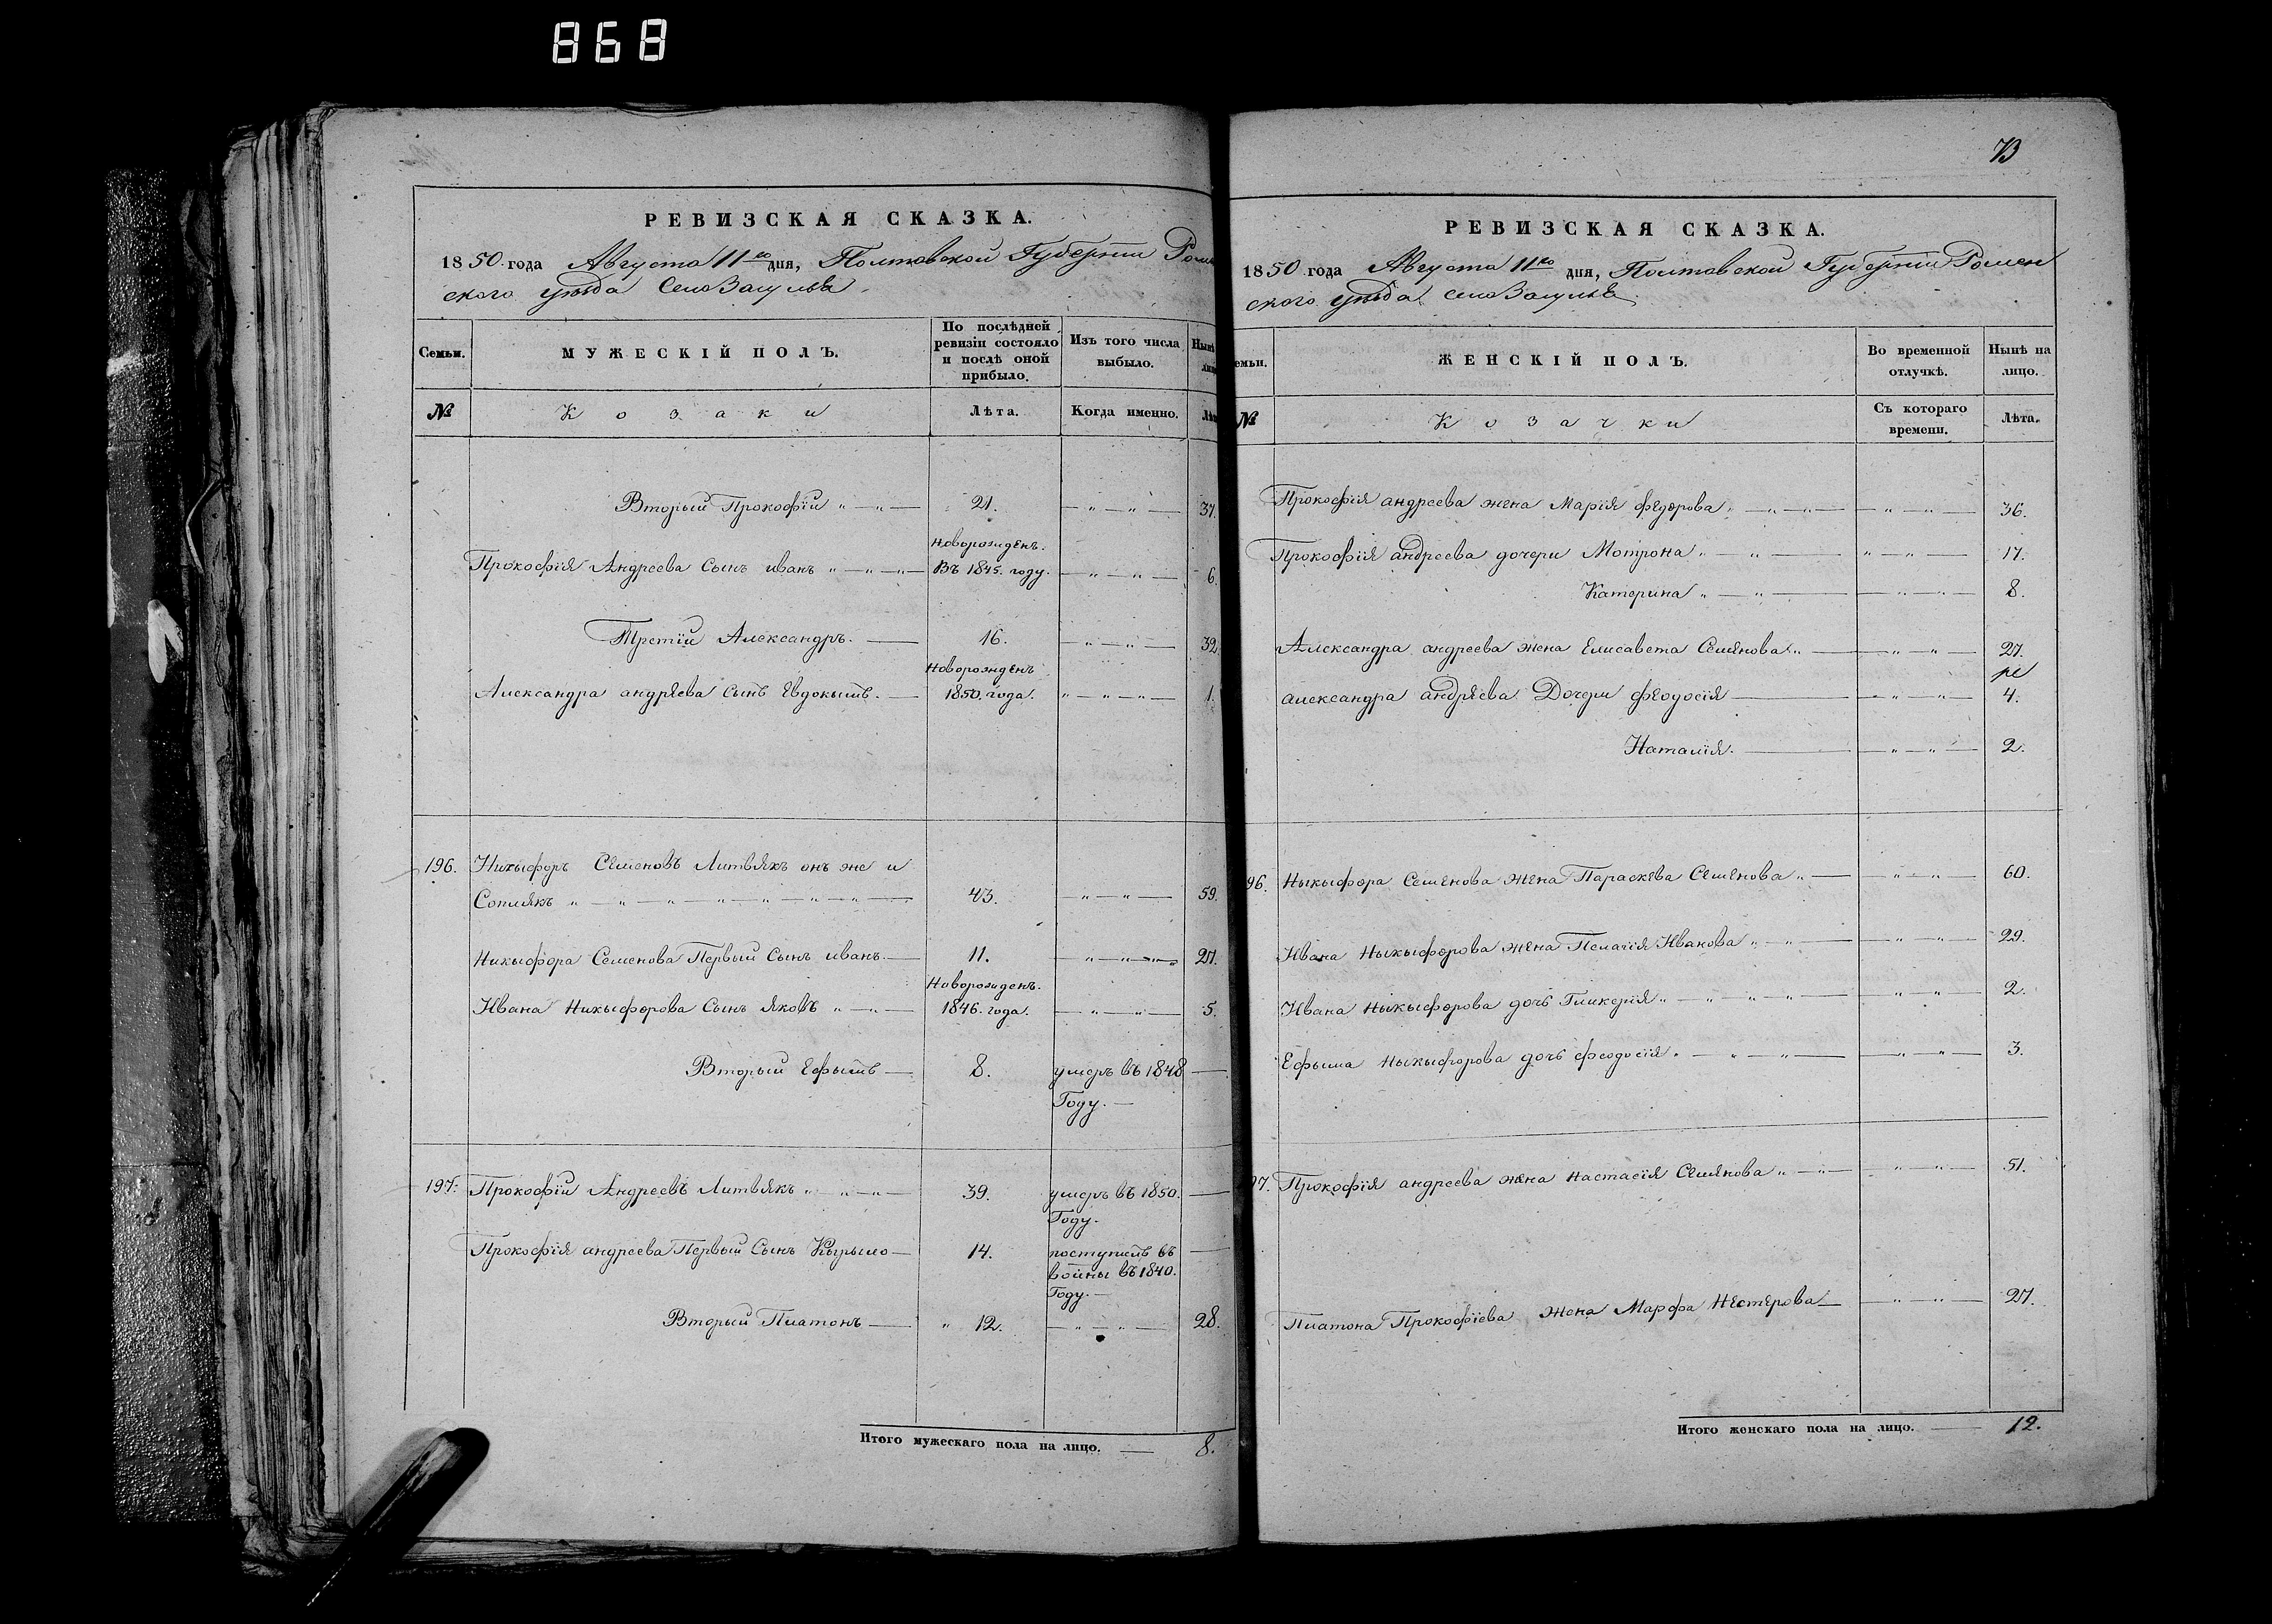 868
РЕВИЗСКАЯ СКАЗКА.
1850 года Августа 11го дня, Полтавской Губернии
ского уезда село Засулье
Семьи.
МУЖЕСКІЙ ПОЛЪ.
По послѣдней ревизіи состояло и послѣ оной прибыло.
Изъ того числа выбыло.
№
Козаки
Лѣта.
Когда именно.
Вторый Прокофій 21. 37.
Новорожденъ.
Прокофія Андреева Сынъ иванъ Въ 1845. году. 6.
Третій Александръ. 16. 32.
Новорожденъ
Александра андреева Сынъ Евдокымъ. 1850. года. 1.
196. Никыфоръ Семеновъ Литвякъ онъ же и
Соплякъ 43. 59.
Никыфора Семенова Первый Сынъ иванъ. 11. 27.
Новорожденъ.
Ивана Никыфорова Сынъ яковъ 1846. года. 5.
Вторый Ефымъ 8. умеръ въ 1848
Году.
197. Прокофій Андреевъ Литвякъ 39. умеръ въ 1850.
Году.
Прокофія андреева Первый Сынъ Кырыло 14. поступилъ въ
войны въ 1840.
Году.
Вторый Платонъ 12. 28.
Итого мужескаго пола на лицо. 8.
73
РЕВИЗСКАЯ СКАЗКА.
1850 года Августа 11го дня, Полтавской Губерніи Ромен
ского уезда село Засулье
ЖЕНСКІЙ ПОЛЪ.
Во временной отлучкѣ.
Нынѣ на лицо.
№
Козачки
Съ котораго времени.
Лѣта.
Прокофія андреева жена Марія федорова 36.
Прокофія андреева дочери Мотрона 17.
Катерина 8.
Александра андреева жена Елисавета Семенова 27.
александра андреева Дочери феодосія 4.
Наталія. 2.
96. Ныкыфора Семенова жена Параскева Семенова 60.
Ивана Ныкыфорова жена Пелагія Иванова 29.
Ивана Ныкыфорова дочь Гликерія 2.
Ефыма Ныкыфорова дочь феодосія 3.
97. Прокофія андреева жена настасія Семянова 51.
Платона Прокофіева жена Марфа Нестерова 27.
Итого женскаго пола на лицо. 12.